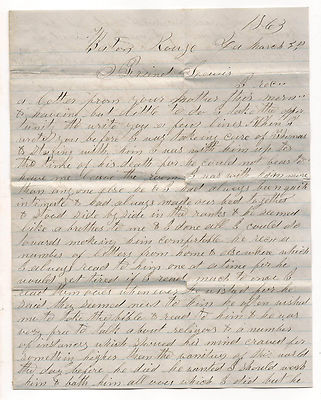 1863
Baton Rouge La March 22
Friend
I rec
a letter from your mother this morn
& haveing but little to do I take the oppor
tunity to write you a few lines. When I
wrote you before I was takeing care of Thomas
& I stayed with him & was with him up to
the time of his death for he could not bear to
have me leave the room I was with him more
than any one else he & I had always been quite
intimate & had always made our bed together
& stood side by side in the ranks & he seemed
like a brother to me & I done all I could do
towards making him comfortable he recd a
number of letters from home & elsewhere which
I always read to him one at a time for he
would get tired if I read much to once &
read them part at once as he wished for he
said they seemed next to him he often wished
me to take the bible & read to him & he was
very free to talk about religion & a number
of instances which showed his mind craved for
something higher than the vanities of this world
the day before he died he wanted I should wash
him & bath him all over which I did but he